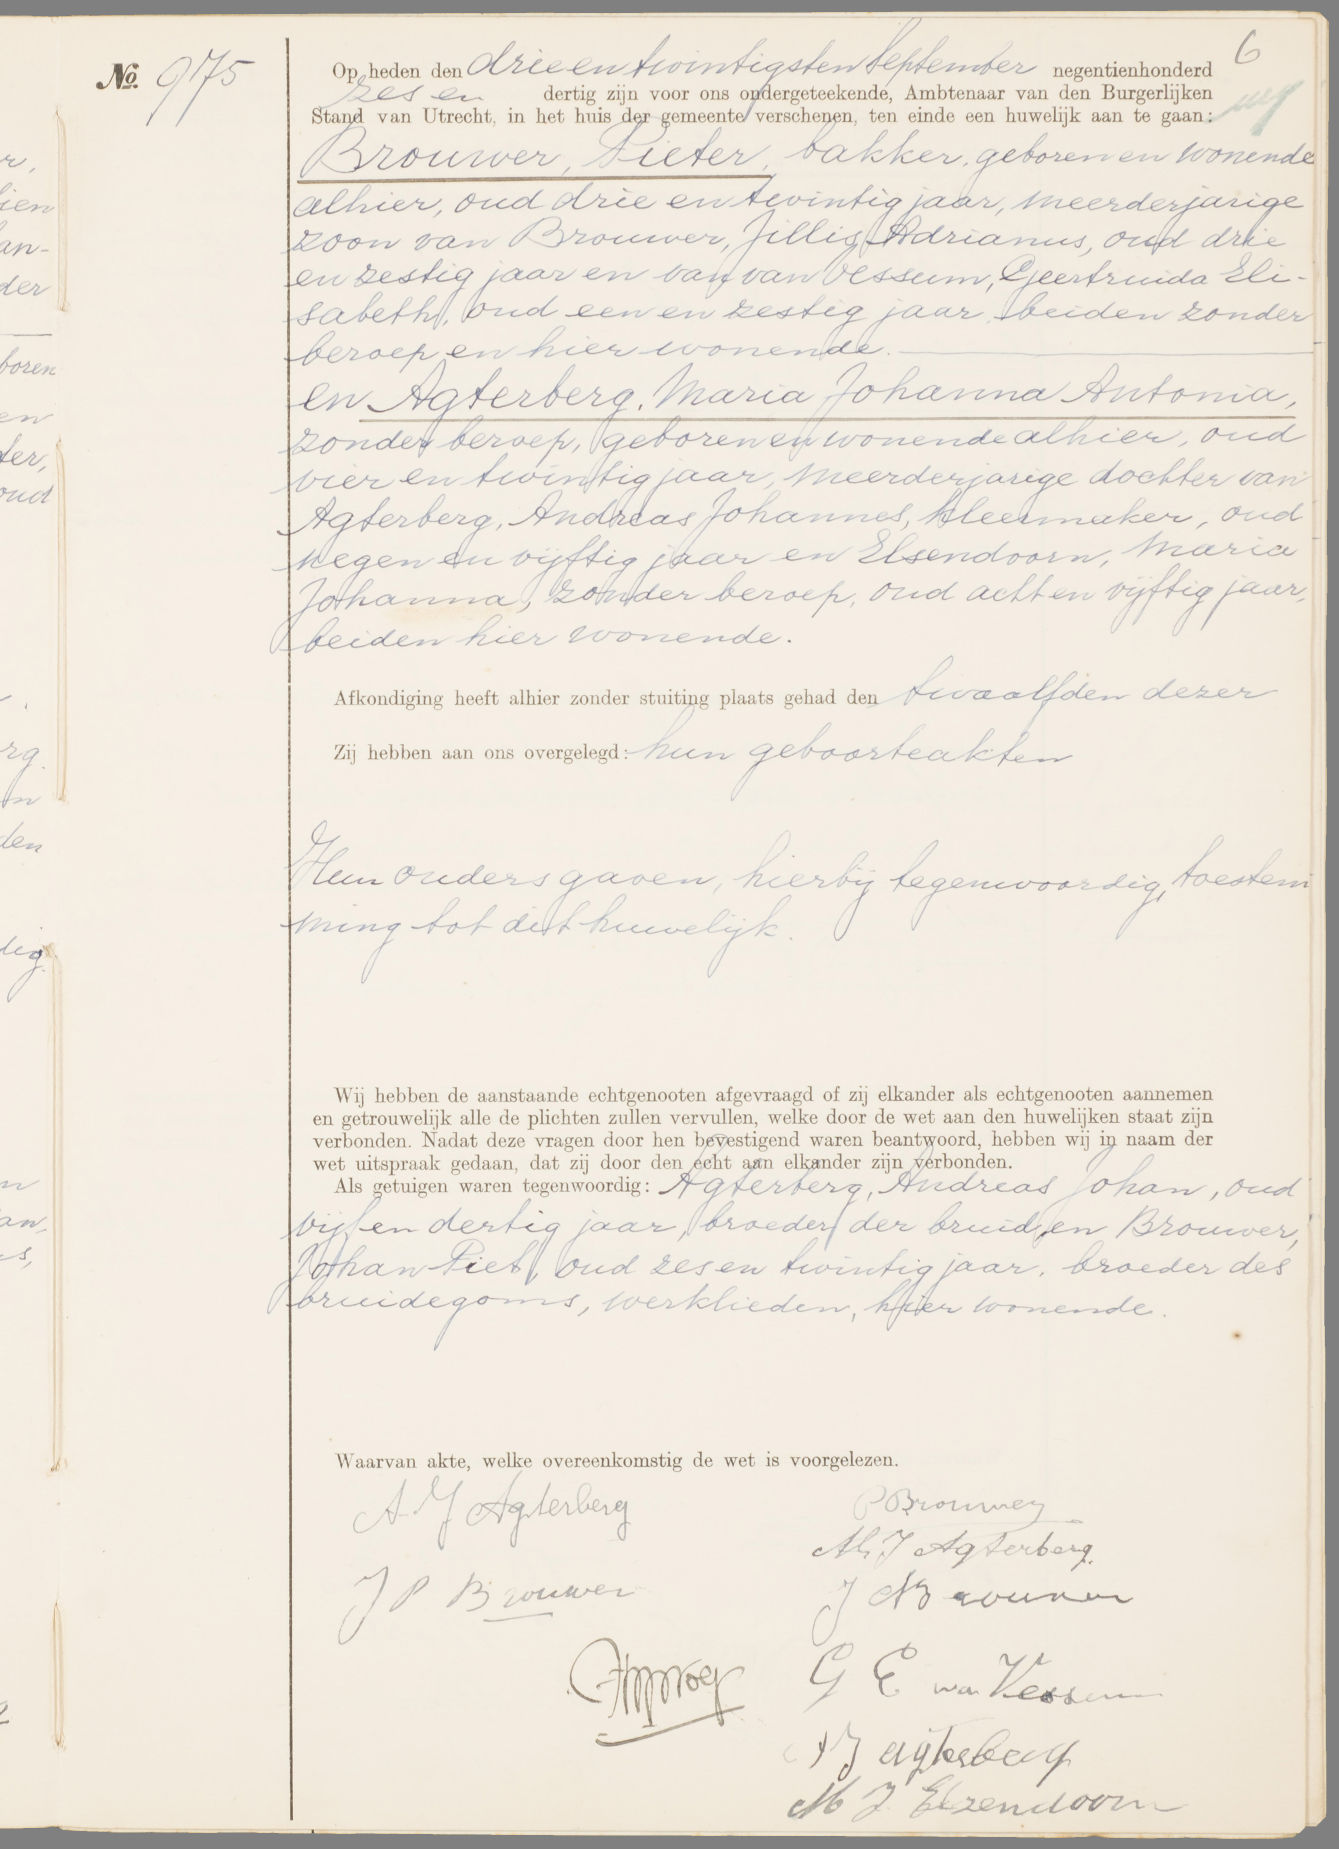 6
No. 975
Op heden den drie en twintigsten September negentienhonderd
zes en dertig zijn voor ons ondergeteekende, Ambtenaar van den Burgerlijken
Stand van Utrecht, in het huis der gemeente verschenen, ten einde een huwelijk aan te gaan:
Brouwer, Pieter, bakker, geboren en wonende
alhier, oud drie en twintig jaar, meerderjarige
zoon van Brouwer, Jillis Adrianus, oud drie
en zestig jaar en van van Vessum, Geertruida Eli-
sabeth, oud een en zestig jaar, beiden zonder
beroep en hier wonende.
en Agterberg, Maria Johanna Antonia,
zonder beroep, geboren en wonende alhier, oud
vier en twintig jaar, meerderjarige dochter van
Agterberg, Andreas Johannes, kleermaker, oud
negen en vijftig jaar en Elsendoorn, Maria
Johanna, zonder beroep, oud acht en vijftig jaar,
beiden hier wonende.
Afkondiging heeft alhier zonder stuiting plaats gehad den twaalfden dezer
Zij hebben aan ons overgelegd: hun geboorteakten
Hun ouders gaven, hierbij tegenwoordig, toestem
ming tot dit huwelijk.
Wij hebben de aanstaande echtgenooten afgevraagd of zij elkander als echtgenooten aannemen
en getrouwelijk alle de plichten zullen vervullen, welke door de wet aan den huwelijken staat zijn
verbonden. Nadat deze vragen door hen bevestigend waren beantwoord, hebben wij in naam der
wet uitspraak gedaan, dat zij door den echt aan elkander zijn verbonden.
Als getuigen waren tegenwoordig: Agterberg, Andreas Johan, oud
vijf en dertig jaar, broeder der bruid, en Brouwer,
Johan Piet, oud zes en twintig jaar, broeder des
bruidegoms, werklieden, hier wonende.
Waarvan akte, welke overeenkomstig de wet is voorgelezen.
A J Agterberg
P Brouwer
M J Agterberg
J P Brouwer
J A Brouwer
G E van Vessum
A J Agterberg
M J Elzendoorn